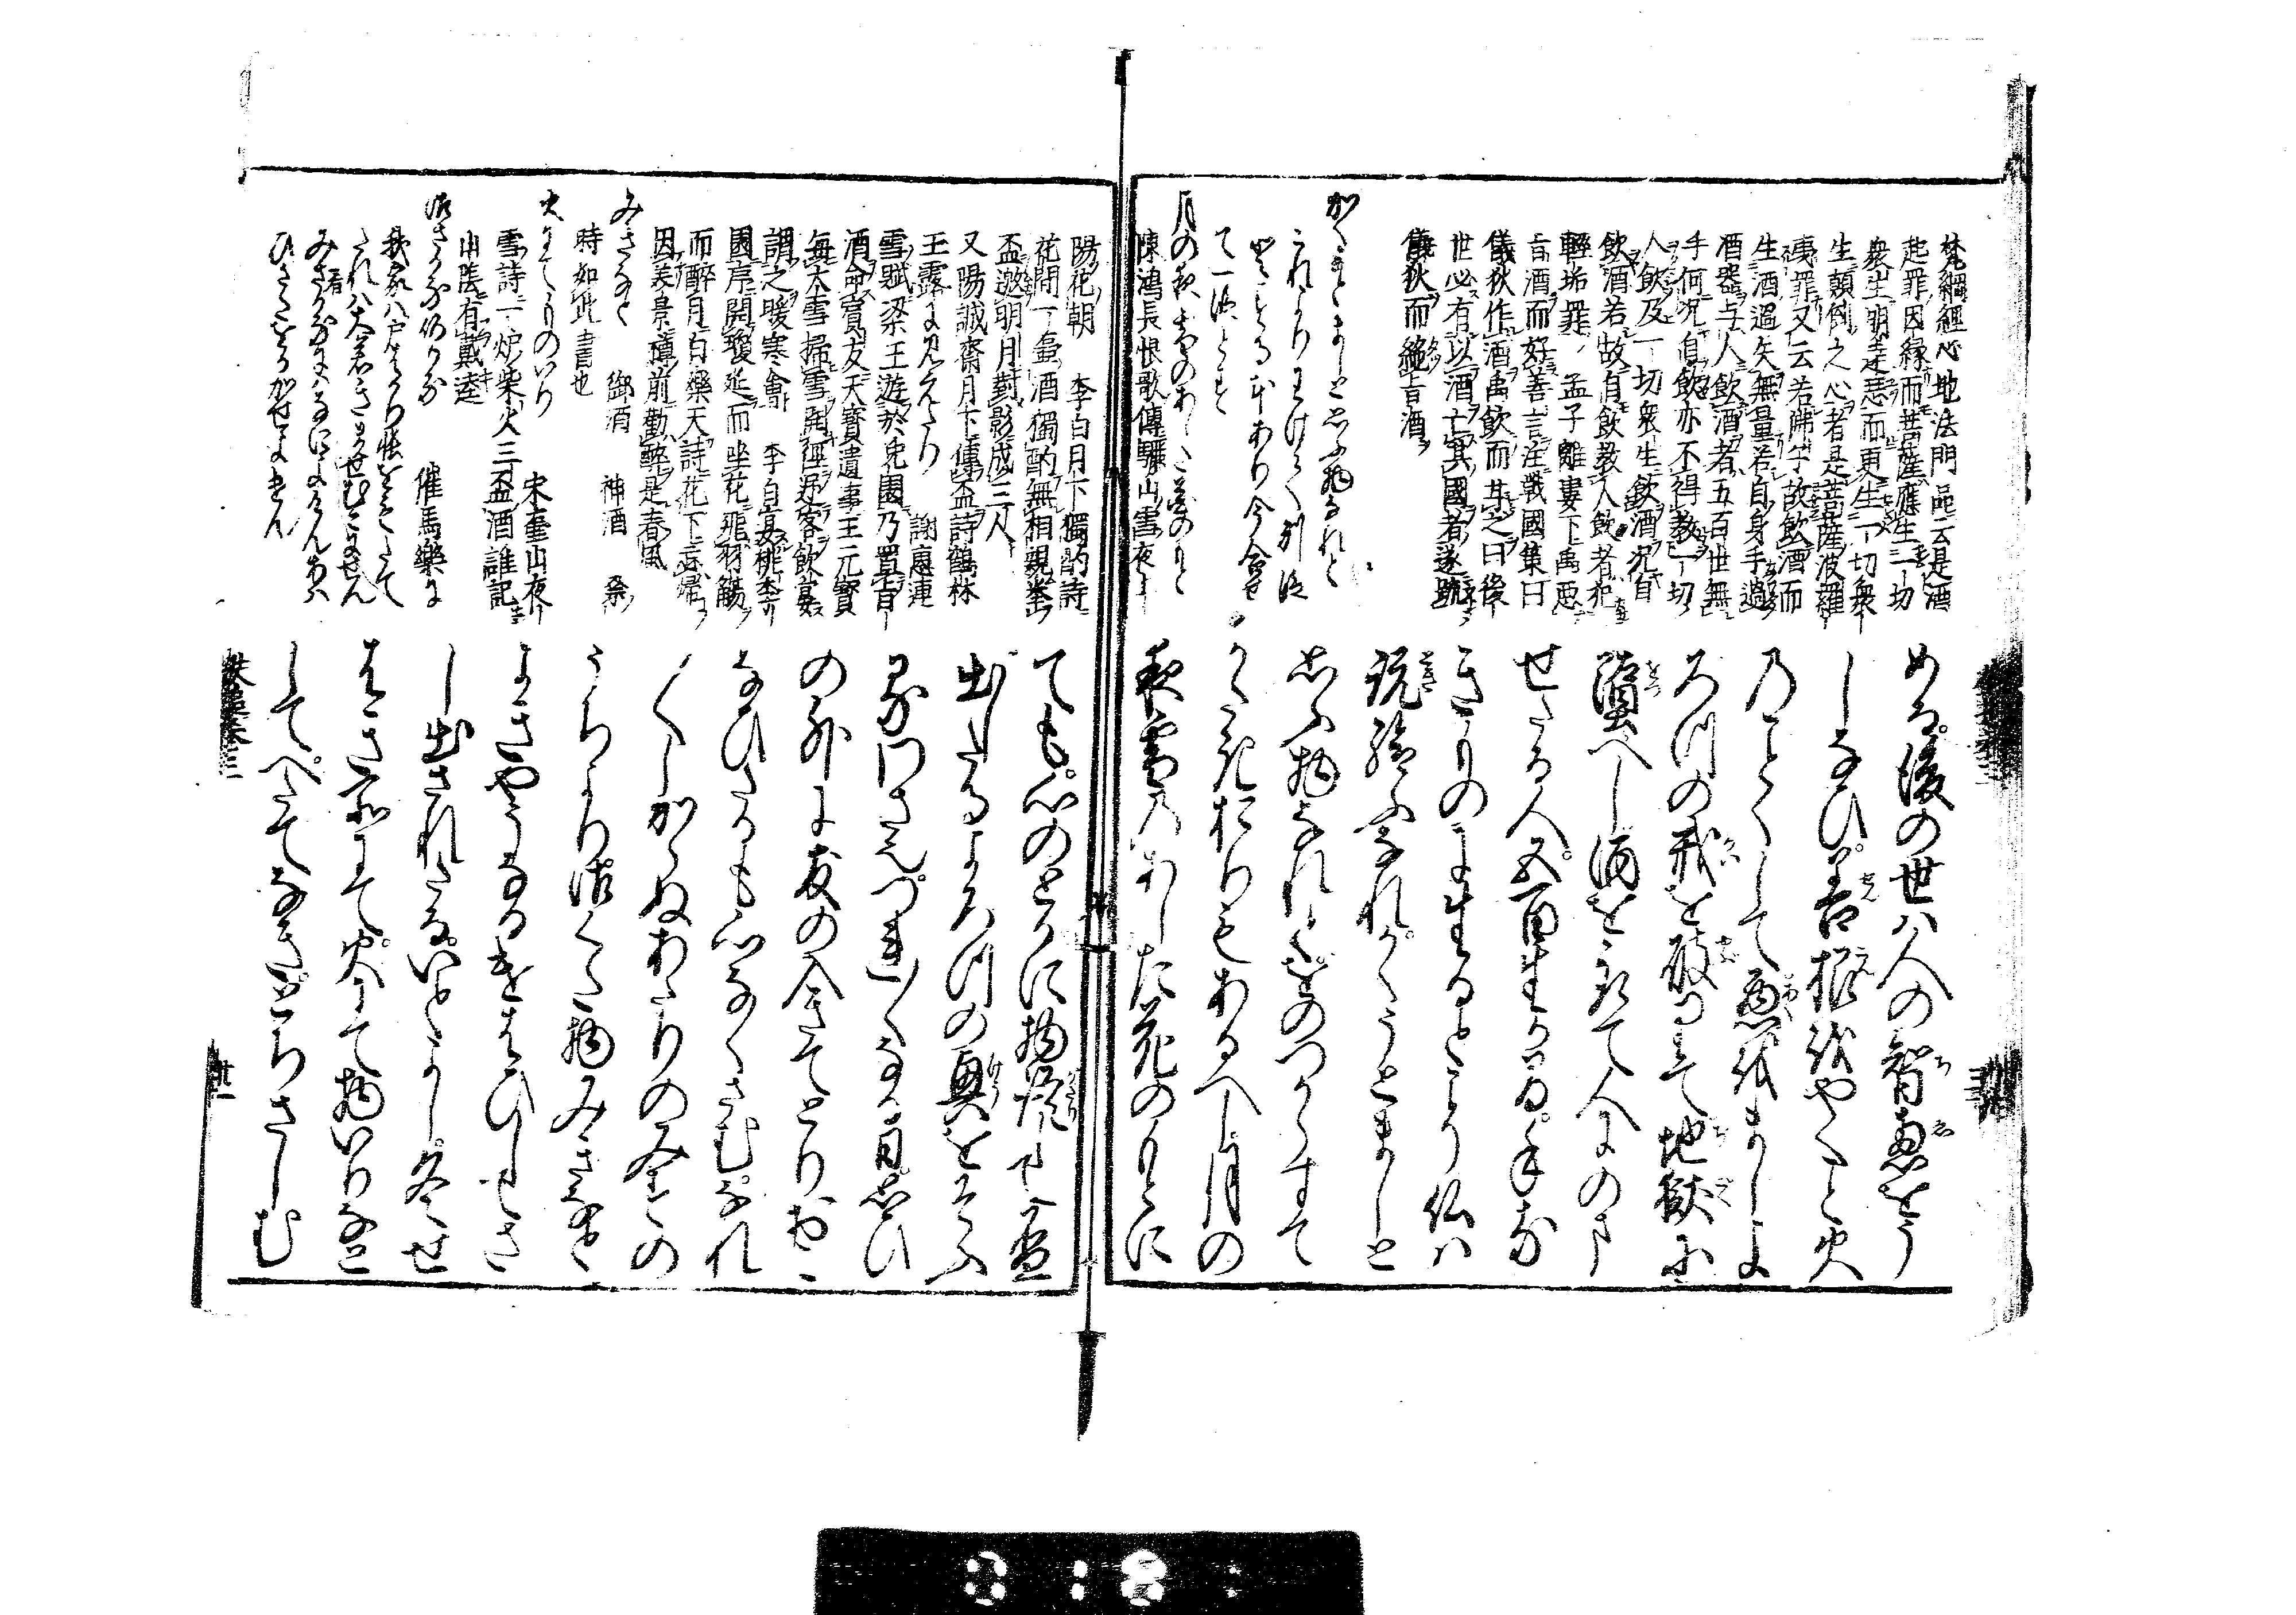 梵網經心地法門品云是酒
起罪因縁而菩薩應生一切
衆生明達惠而更生一切衆
生顛倒之心者是菩薩波羅
夷罪又云若佛子故飲酒而
生酒過失無量若自身手過
酒器与人飲酒者五百世無
手何况自飲亦不得教一切
人飲及一切衆生飲酒况自
飲酒若故自飲教人飲者犯
輕垢罪 孟子離婁下禹惡
旨酒而好善言注戰國策曰
儀狄作酒禹飲而甘之曰後
世必有以酒亡其國者遂疏
儀狄而絶旨酒
かくうとましと思ふ物なれと
これよりはしけく別段
て一段とす
月の夜雪のあした花のもと
陳鴻長恨歌傳驪山雪夜
める。後の世は人の智恵をう
しなひ。善根をやくこと火
のことくして悪をまし。よ
ろつの戒を破りて地獄に
墮へし酒をとりて人にのま
せたる人。五百生か間。手な
きものに生るとこそ仏は
説給ふなれ。かくうとましと
思ふ物なれと。をのつからすて
かたき折もあるへし。月の
夜雪のあした花のもとに
陽花朝 李白月下獨酌詩
花間一壷酒獨酌無相親擧
盃邀明月對影成三人
又陽誠齋月下傳盃詩鶴林
玉露に見えたり 謝惠連
雪賦梁王遊於兎園乃置旨
酒命賓友天寶遺事王元寶
毎大雪掃雪開徑迎客飲宴
謂之暖寒會 李白宴桃李
園序開瓊筵而坐花飛羽觴
而醉月白樂天詩花下忘歸
因美景樽前勸醉是春風
みきなと 御酒 神酒 祭
時如此書也
火にてものいり 宋壷山夜
雪詩一炉柴火三盃酒誰記
山陰有戴逵
御さかな何かな 催馬樂に
我家八戸はり帳をたれて
たれは大君きませむこにせん
みさかなにはなによけんあは
ひさたをかかせよけん
ても。心のとかに物語して盃
出したるよろつの興をそふ
るわさ也。つれ〱なる日。思ひ
の外に友の入きてとりおこ
なひたるも心なくさむ。なれ
〱しからぬあたりのみすの
うちより御くた物みきなと
よきやうなるけはひしてさ
し出されたる。いとよし。冬せ
はき所にて。火にて物いりなと
して。へたてなきとちさしむ
鉄槌巻三
廿一